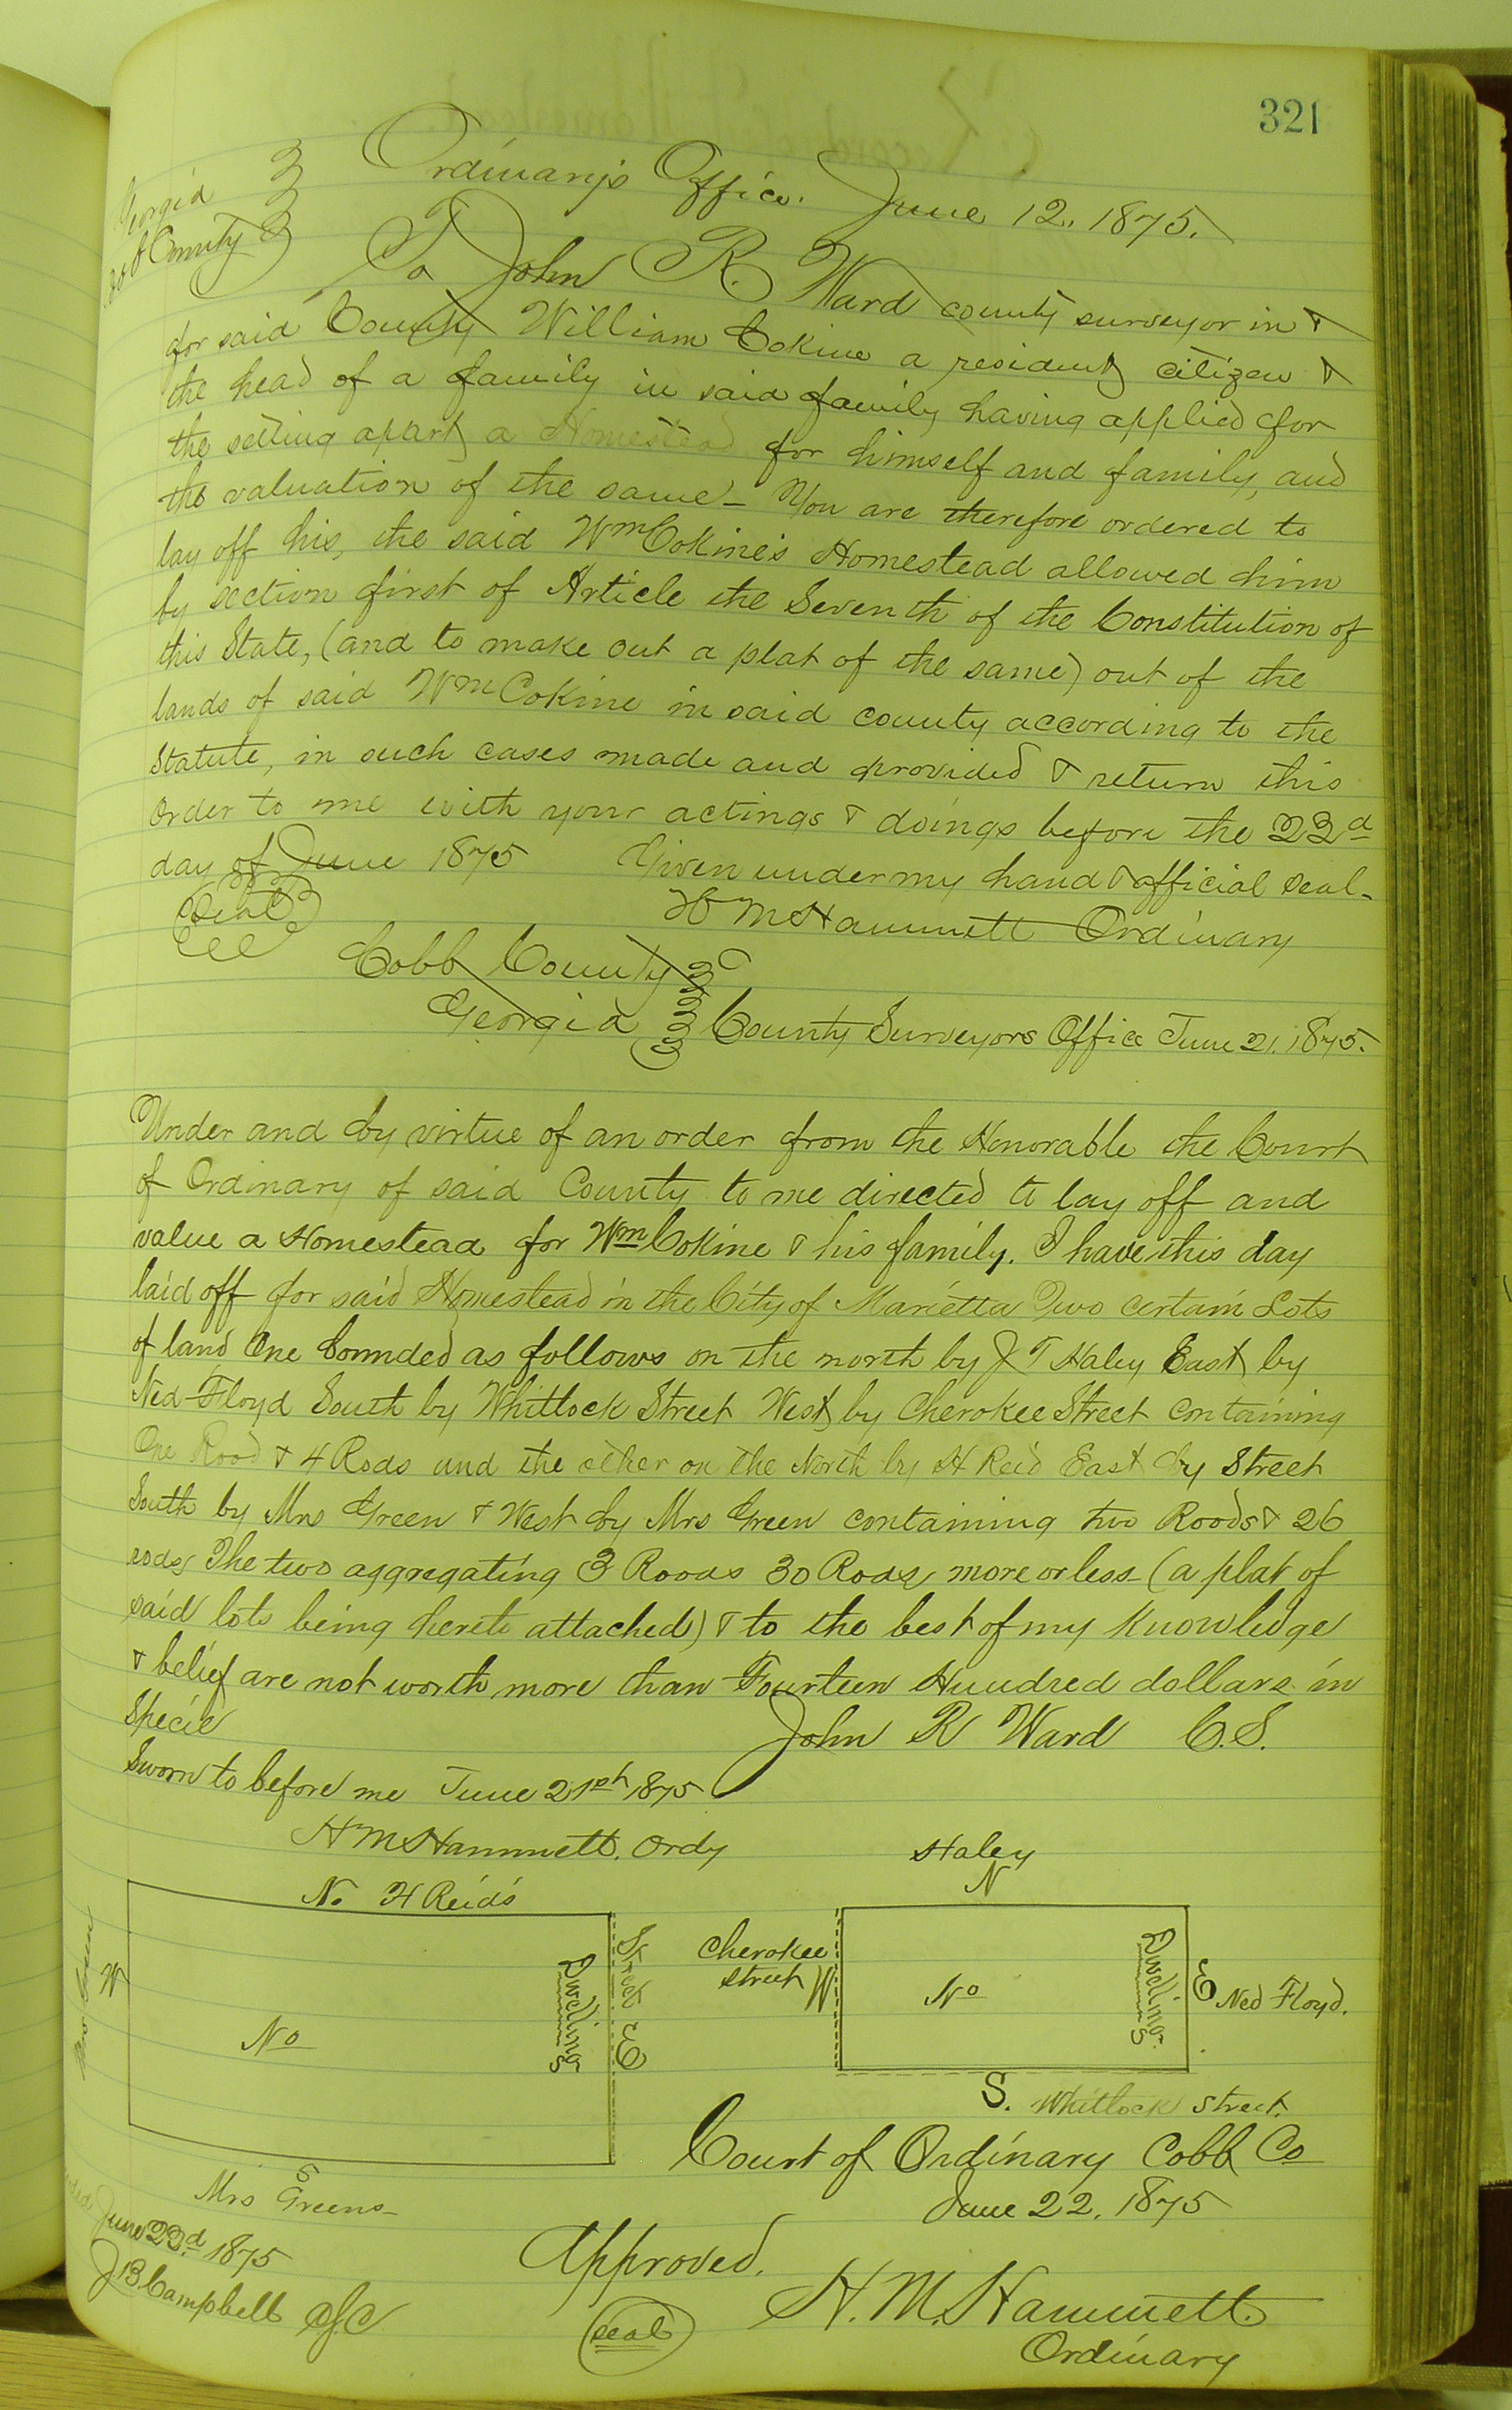 321
Georgia
Cobb County
Ordinary's Office. June 12, 1875.
To John R. Ward county surveyor in &
for said County William Cokine a resident citizen &
the head of a family in said family having applied for
the setting apart a Homestead for himself and family, and
the valuation of the same - You are therefore ordered to
lay off his, the said Wm Cokine's Homestead allowed him
by section first of Article the Seventh of the Constitution of
this State, (and to make out a plat of the same) out of the
lands of said Wm Cokine in said county according to the
Statute, in such cases made and provided & return this
order to me with your actings & doings before the 22d
day of June 1875 Given under my hand & official seal -
Seal
H M Hammett Ordinary
Cobb County
Georgia County Surveyors Office June 21, 1875.
Under and by virtue of an order from the Honorable the Court
of Ordinary of said County to me directed to lay off and
value a Homestead for Wm Cokine & his family. I have this day
laid off for said Homestead in the City of Marietta Two certain Lots
of land One bounded as follows on the north by J T Haley East by
Ned Floyd South by Whitlock Street West by Cherokee Street containing
One Rood & 4 Rods and the other on the North by H Reid East by Street
South by Mrs Green & West by Mrs Green containing two Roods & 26
rods, The two aggregating 3 Roods 30 Rods, more or less (a plat of
said lots being hereto attached) & to the best of my knowledge
& belief are not worth more than Fourteen Hundred dollars in
Specie
John R Ward C.S.
Sworn to before me June 21st 1875
H M Hammett. Ordy
No H Reids
W
Street
E
Dwelling
S
No
S
Mrs Greens
Haley
N
Cherokee
Street W
No
Dwelling
S
E Ned Floyd.
S. Whitlock Street.
Court of Ordinary Cobb Co
June 22, 1875
June 22d 1875
J B Campbell
Approved.
seal
H. M. Hammett
Ordinary